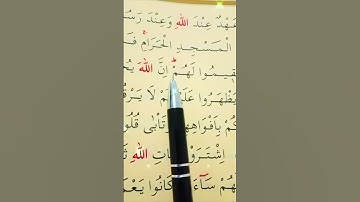 عَهْدٌ عِنْدَ اللهِ وَعِنْدَ رَسُ
الْمَسْجِدِ الْحَرَامِۚ فَ
قِيمُوا لَهُمْؕ اِنَّ اللهَ يُ
يَظْهَرُوا عَلَ لَا يَرْقُ
كُمْ بِاَفْوَاهِهِ تَأْبٰى قُلُو
اِشْتَرَوْا يَاتِ اللهِ ثَ
هُمْ سَآءَ كَانُوا يَعْمَ